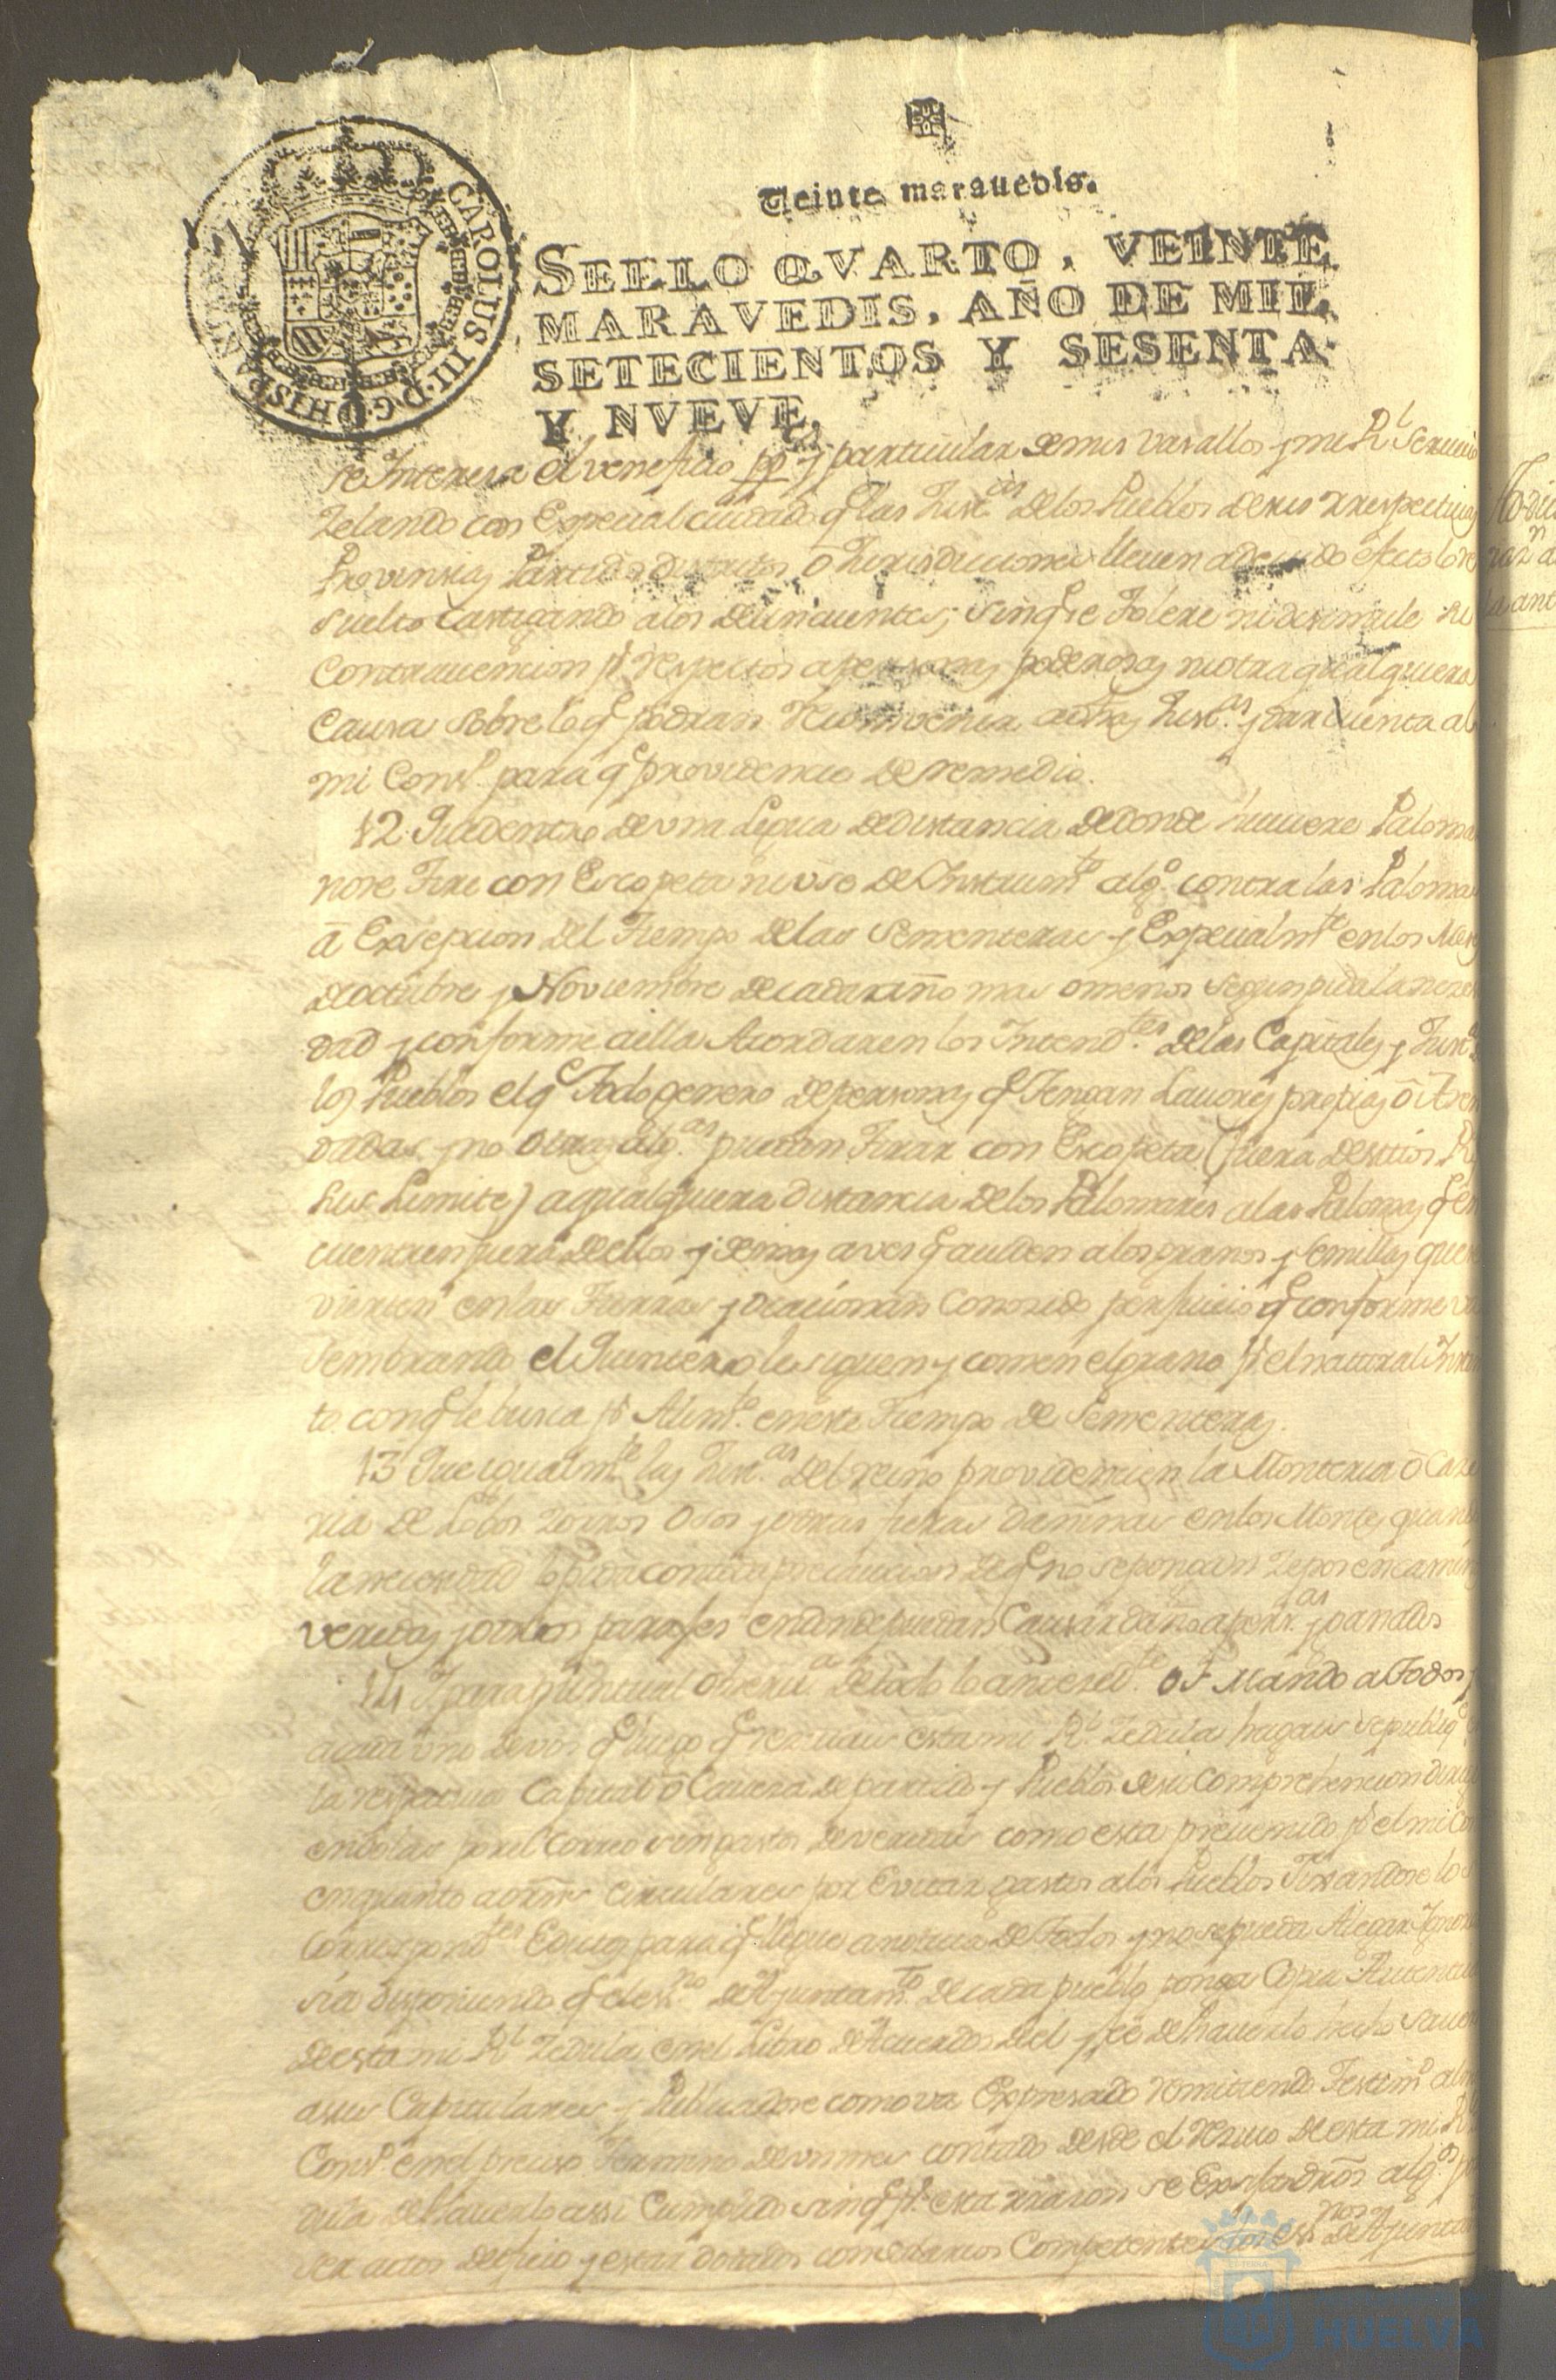 Veinte marauedis.
SELLO QVARTO, VEINTE
MARAVEDIS, AÑO DE MIL
SETECIENTOS Y SESENTA
Y NVEVE.
CAROLUS III·D·G·HISP
se Interesa el veneficio pp.co y particular de mis vasallos y mi Rl Servicio
Zelando con Especial cuidado q.e las Just.as de los Pueblos de sus rrespectivas
Provinsias Partidos distritos ō Jurisdiciones lleven a devido efecto lo re
suelto Castigando a los delincuentes, sin q.e se Tolere ni desimule su
Contravencion p.r respectos a personas poderosas ni otra qualquiera
Causa sobre lo q.e podran Reconvenir a dhas Just.as y dar Cuenta al
mi Cons.o para q.e providencie de remedio.
12 Que dentro de vna Legua de distancia de donde huviere Paloma
no se Tire con Escopeta ni vse de Instrum.to alg.o contra las Palomas
ā Exsepcion del Tiempo de las Sementeras y Expecialm.te en los Mes
de octubre y Noviembre de cada año mas o menos segun pida la neces
dad y conforme a ella Acordaren los Intend.tes de las Capitales y Just
los Pueblos el q.e Todo genero de personas q.e Tengan Lavores propias ō Arren
dadas y no otras alg.as puedan Tirar con Escopeta (fuera de sitios R
sus Limite) a qualquiera distancia de los Palomares a las Palomas q.e en
cuentren fuera de ellos y demas aves q.e acuden a los granos y Semillas que
vierten en las Tierras y ocacionan Conosido perjuicio q.e conforme va
Sembrando el Quintero le siguen y comen el grano p.r el natural Ynsti
to con q.e le busca p.r Alim.to en este Tiempo de Sementeras.
13 Que igualm.te las Just.as del reino providencien la Monteria ō Case
ria de Lobos Zorros Osos y otras fieras dañinas en los Montes quando
la necesidad lo pida con la precaucion de q.e no se pongan Zepos en camin
veredas y otros parajes en donde puedan Causar daño a pers.as y ganados
14 Y para puntual observ.a de todo lo antesed.te os Mando a Todos y
a cada vno de vos q.e luego q.e resivais esta mi Rl Zedula hagais se publiq.e
la respectiva Capital ō Cavesa de partido y Pueblos de su Comprehencion
endolas por el Correo sin gastos de veredas como esta prevenido p.r el mi Co
en quanto a orns Circulares por Evitar gastos a los Pueblos Fixandose lo
Correspond.tes Edictos para q.e llegue a noticia de Todos y no se pueda Alegar Ignora
sia disponiendo q.e el es.no de Ayuntam.to de cada pueblo ponga Copia Autentica
de esta mi Rl Zedula en el Libro de Acuerdos del y fee de haverlo hecho saver
a sus Capitulares y Publicadose como va Expresado remitiendo Testim.o al
Cons.o en el preciso Termino de vn mes contado desde el reciuo de esta mi Rl
dula de haverlo assi Cumplido sin q.e p.r esta rrason se Exsijan dros alg.os
ser actos de oficio y estar dotados con Salarios Competentes los es.nos de Ayuntam
HUELVA